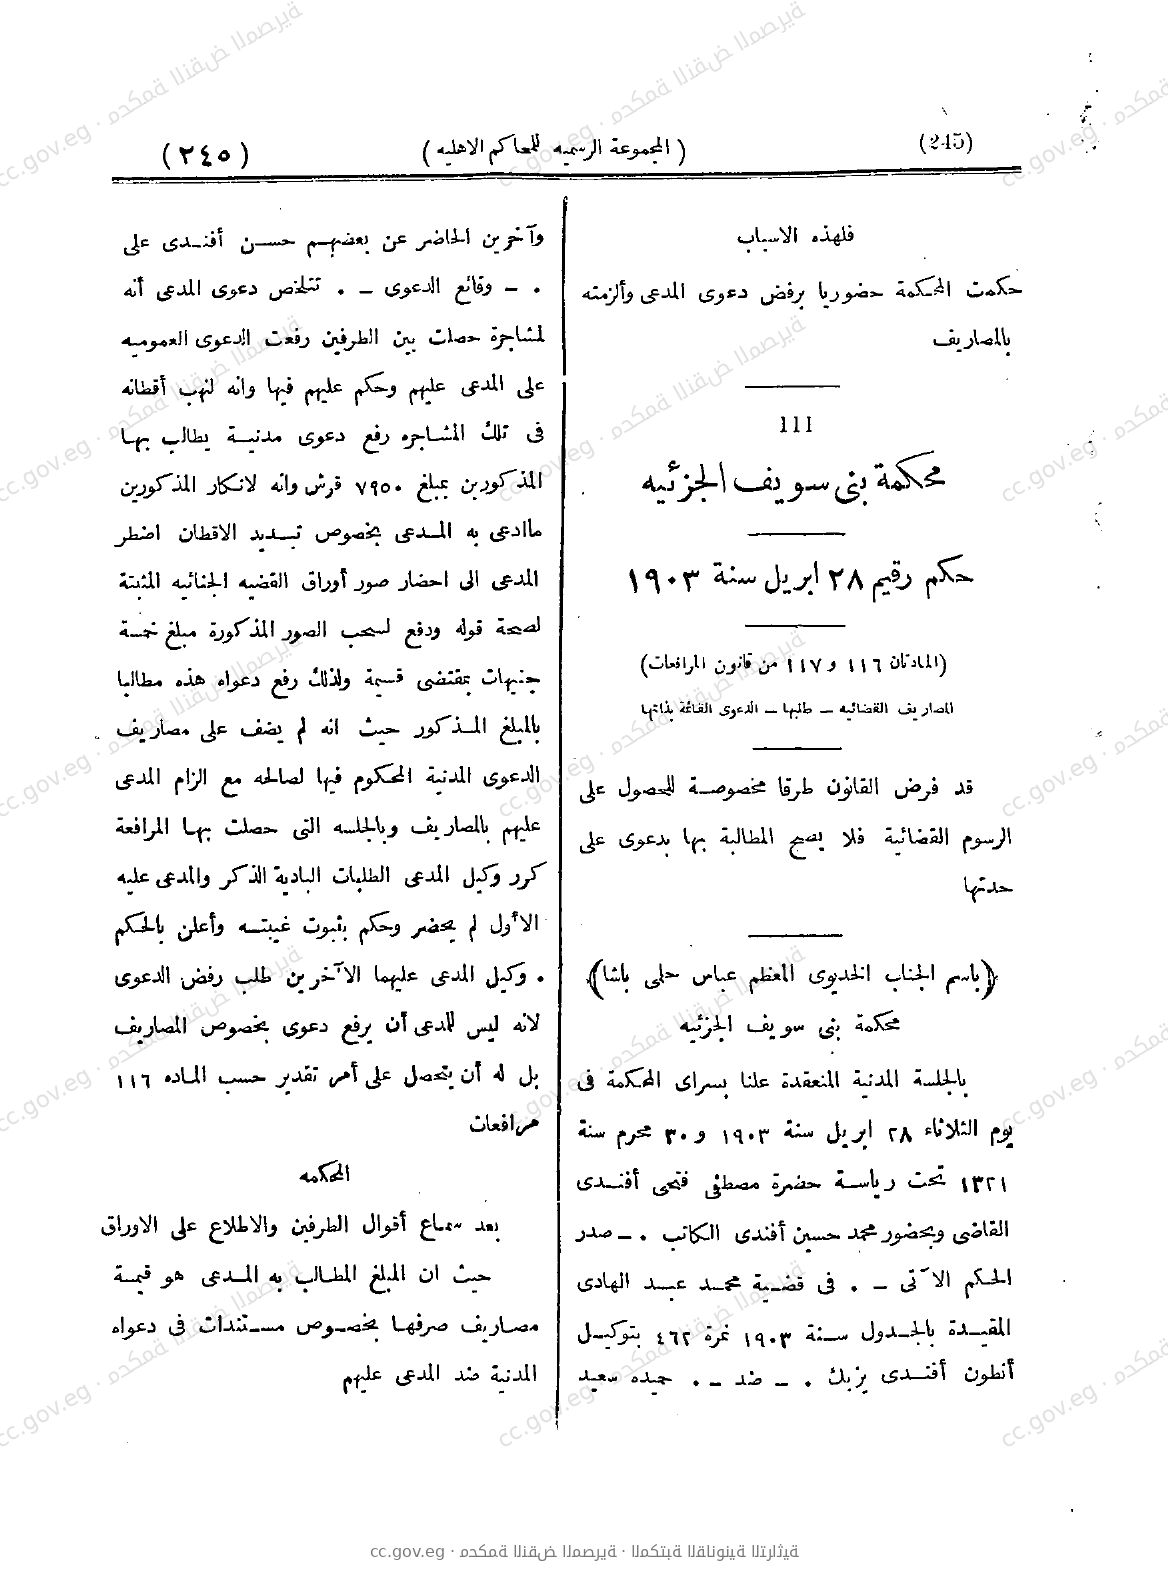 (245)
( المجموعة الرسمية للمحاكم الاهلية )
( ٢٤٥ )
فلهذه الاسباب
حكمت المحكمة حضوريا برفض دعوى المدعى وألزمته
بالمصاريف
111
محكمة بنى سويف الجزئيه
حكم رقيم ٢٨ ابريل سنة ١٩٠٣
(المادتان ١١٦ و ١١٧ من قانون المرافعات)
المصاريف القضائيه – طلبها – الدعوى القائمة بذاتها
قد فرض القانون طرقا مخصوصة للحصول على
الرسوم القضائية فلا يصح المطالبة بها بدعوى على
حدتها
(باسم الجناب الخديوى المعظم عباس حلمى باشا)
محكمة بنى سويف الجزئيه
بالجلسة المدنية المنعقدة علنا بسراى المحكمة فى
يوم الثلاثاء ٢٨ ابريل سنة ١٩٠٣ و ٣٠ محرم سنة
١٣٢١ تحت رياسة حضرة مصطفى فتحى أفندى
القاضى وبحضور محمد حسين أفندى الكاتب . – صدر
الحكم الآتى – . فى قضية محمد عبد الهادى
المقيدة بالجدول سنة ١٩٠٣ نمرة ٤٦٢ بتوكيل
أنطون أفندى يزبك . – ضد – . حميده سعيد
وآخرين الحاضر عن بعضهم حسن أفندى على
. – وقائع الدعوى – . تتلخص دعوى المدعى أنه
لمشاجرة حصلت بين الطرفين رفعت الدعوى العموميه
على المدعى عليهم وحكم عليهم فيها وانه لنهب أقطانه
فى تلك المشاجره رفع دعوى مدنية يطالب بها
المذكورين بمبلغ ٧٩٥٠ قرش وانه لانكار المذكورين
ماادعى به المدعى بخصوص تبديد الاقطان اضطر
المدعى الى احضار صور أوراق القضيه الجنائيه المثبتة
لصحة قوله ودفع لسحب الصور المذكورة مبلغ خمسة
جنيهات بمقتضى قسيمة ولذلك رفع دعواه هذه مطالبا
بالمبلغ المذكور حيث انه لم يضف على مصاريف
الدعوى المدنية المحكوم فيها لصالحه مع الزام المدعى
عليهم بالمصاريف وبالجلسه التى حصلت بها المرافعة
كرر وكيل المدعى الطلبات البادية الذكر والمدعى عليه
الأول لم يحضر وحكم بثبوت غيبته وأعلن بالحكم
. وكيل المدعى عليهما الآخرين طلب رفض الدعوى
لانه ليس للمدعى أن يرفع دعوى بخصوص المصاريف
بل له أن يتحصل على أمر تقدير حسب الماده ١١٦
مرافعات
المحكمه
بعد سماع أقوال الطرفين والاطلاع على الاوراق
حيث ان المبلغ المطالب به المدعى هو قيمة
مصاريف صرفها بخصوص مستندات فى دعواه
المدنية ضد المدعى عليهم
cc.gov.eg · محكمة النقض المصرية · المكتبة القانونية التراثية